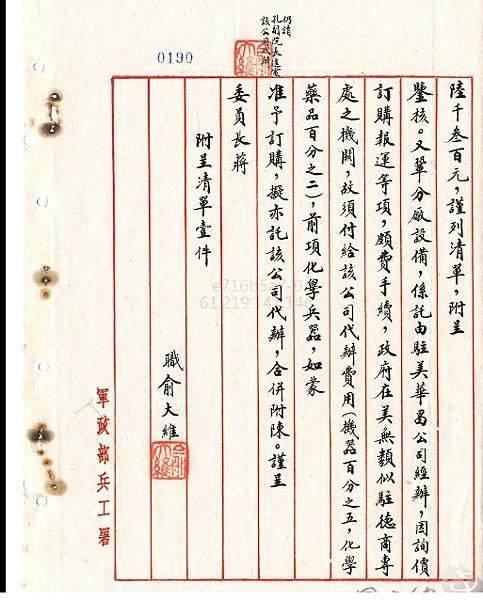 陸千叁百元，謹列清單，附呈
鑒核。又鞏分廠設備，係託由駐美華昌公司經辦，因詢價
訂購報運等項，頗費手續，政府在美無類似駐德商專
處之機關，故須付給該公司代辦費用（機器百分之五，化學
藥品百分之二），前項化學兵器，如蒙
准予訂購，擬亦託該公司代辦，合併附陳。謹呈
委員長蔣
附呈清單壹件
職俞大維
軍政部兵工署
0190
仍請
孔副院長逕電
該公司
61.219.1